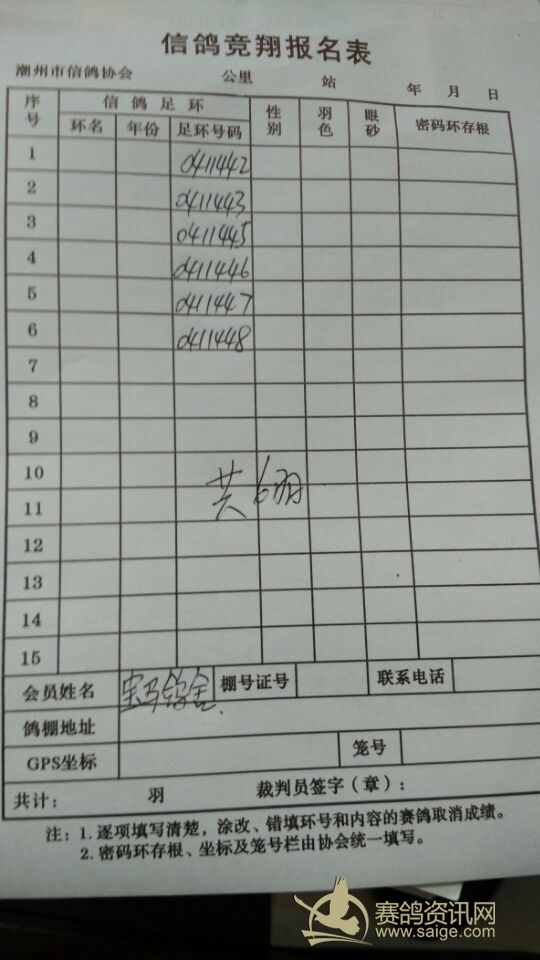 信鸽竞翔报名表
潮州市信鸽协会 公里 站 年 月 日
序号 信鸽足环 性别 羽色 眼砂 密码环存根
环名 年份 足环号码
1 0411442
2 0411443
3 0411445
4 0411446
5 0411447
6 0411448
7
8
9
10
共6羽
11
12
13
14
15
会员姓名 宝马鸽舍 棚号证号 联系电话
鸽棚地址
GPS坐标 笼号
共计: 羽 裁判员签字(章):
注: 1. 逐项填写清楚,涂改、错填环号和内容的赛鸽取消成绩。
2. 密码环存根、坐标及笼号栏由协会统一填写。
赛鸽资讯网
www.saige.com